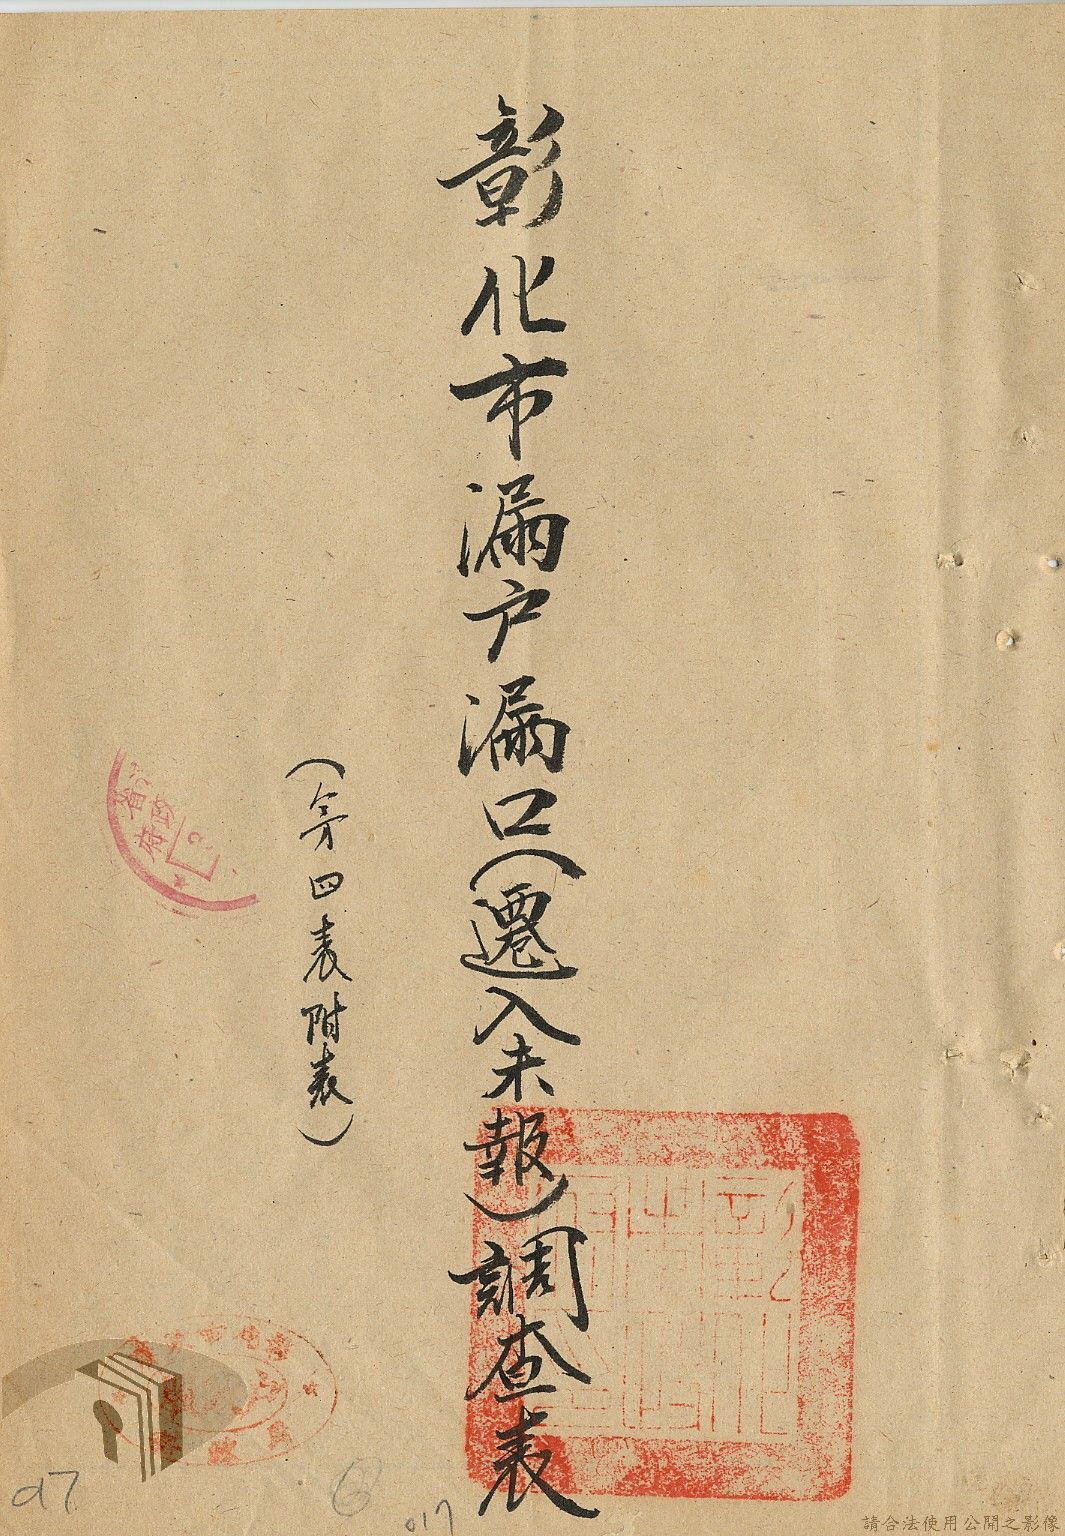 彰化市漏戶漏口(遷入未報)調查表
(第四表附表)
省政
府
017
請合法使用公開之影像